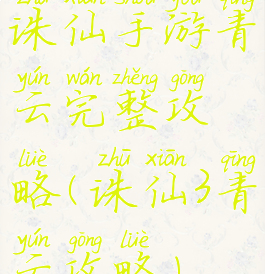 zhū xiān shǒu yóu qīng
诛仙手游青
yún wán zhěng gōng
云完整攻
lüè zhū xiān qīng
略(诛仙3青
yún gōng lüè
云攻略)